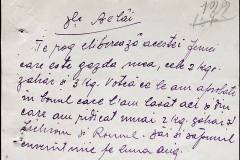 122
dlo Aolăi
Te rog eliberează acestei femei
care este gazda mea, cele 2 kgr.
zahăr și 3 kg. Votcă ce le am aprobate
în bonul care l'am lăsat aci și din
care am ridicat numai 2 kgr. zahăr 2
și Romul. Dai și săpunul
cuvenit mie pe luna aug.